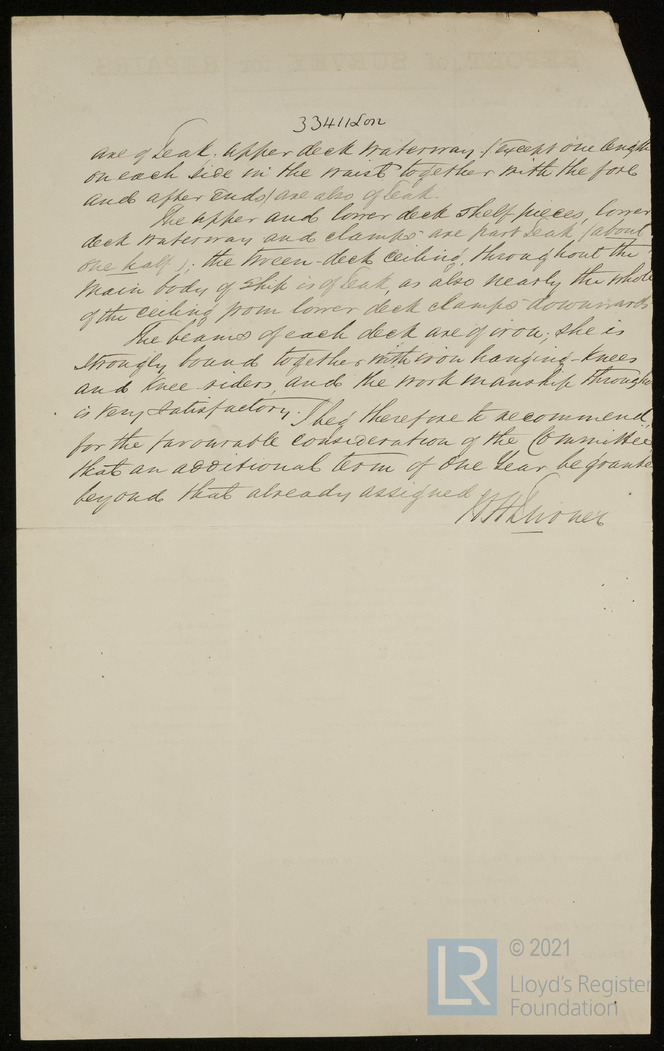 33411 Lon
are of Teak. Upper deck waterway (except one length
on each side in the waist together with the fore
and after ends) are also of Teak.
The upper and lower deck shelf pieces, lower
deck waterway and clamps are part Teak (about
one half); the tween-deck ceiling, throughout the
main body of ship is of Teak, as also nearly the whole
of the ceiling from lower deck clamps downwards
The beams of each deck are of iron; she is
strongly bound together with iron hanging-knees
and knee-riders, and the workmanship through
is very satisfactory. I beg therefore to recommend,
for the favourable consideration of the Committee
that an additional term of One Year be grante
beyond that already assigned
REPORT of SURVEY for REPAIRS
LR
© 2021
Lloyd's Register
Foundation